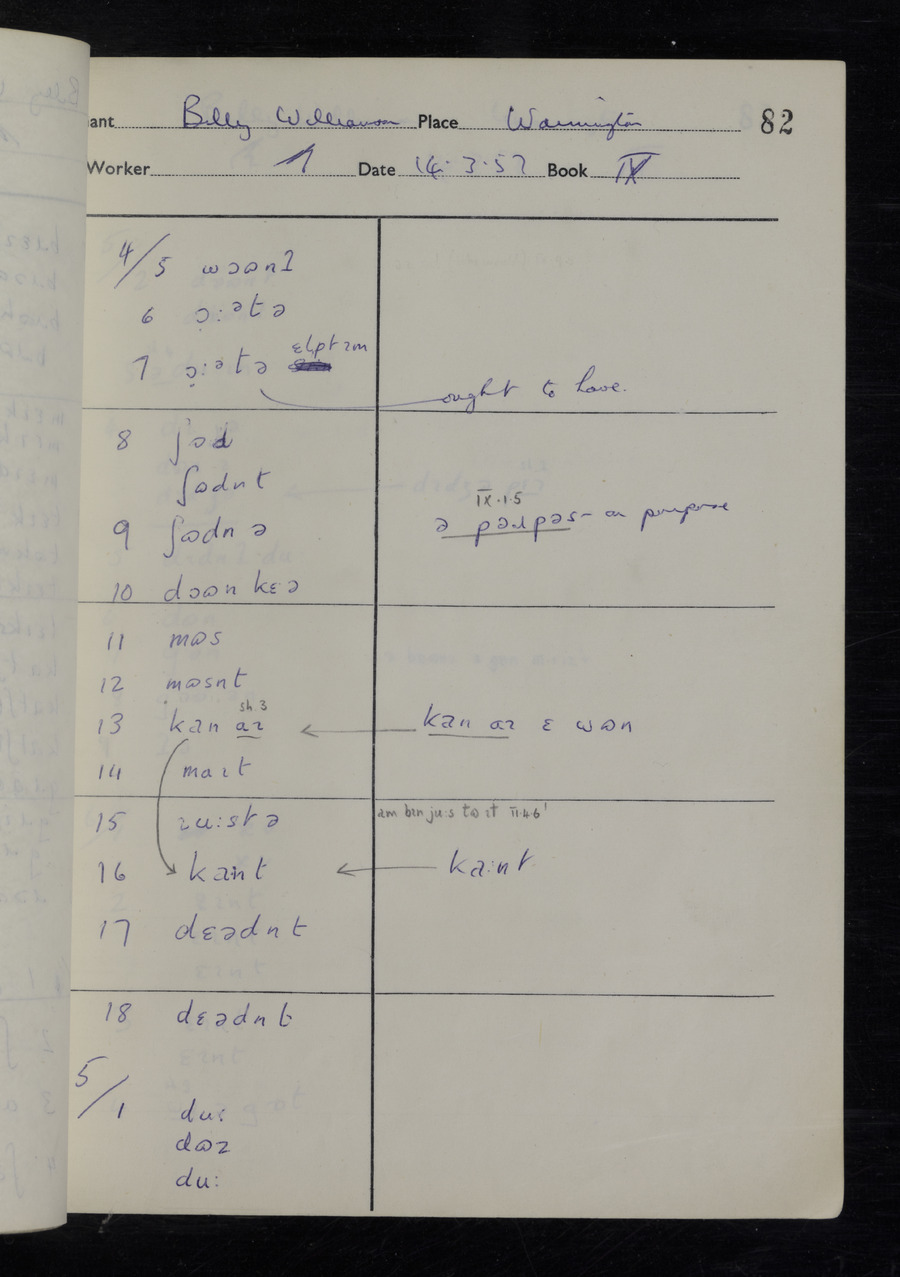 ant Billy Williamson Place Warrington 82
Worker 1 Date 14·3·57 Book IX
4/5
6 ɔ:ətə
7 ɔ:ətə ɛlptɪm
ought to have.
8 ʃɷd
ʃɷdnt
IX·1·5
9 ʃɷdn ə
ə pəɹpəs – on purpose
10 dɔɷn kɛə
11 mɷs
12 mɷsnt
sh. 3
13 kan aɪ ← kan aɪ ɛ wɷn
14 maɪt
15 ɪu:stə am bɪn ju:s tɷ ɪt II·4·6
16 ka:nt ← ka:nt
17 dɛədnt
18 dɛədnt
5/1 du:
dɷz
du: